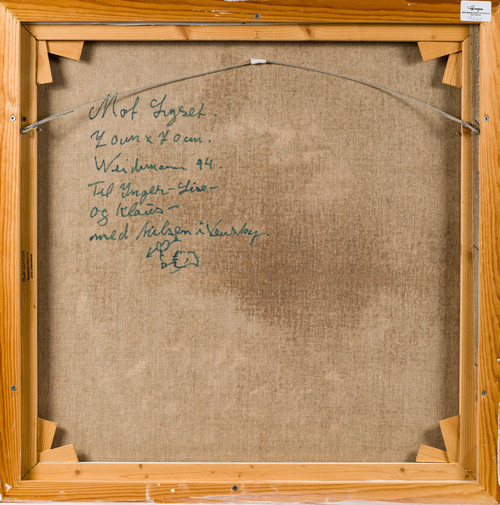 Mot Lyset.
70 cm x 70 cm.
Weidemann 94.
Til Inger-Lise-
og Klaus-
med hilsen i